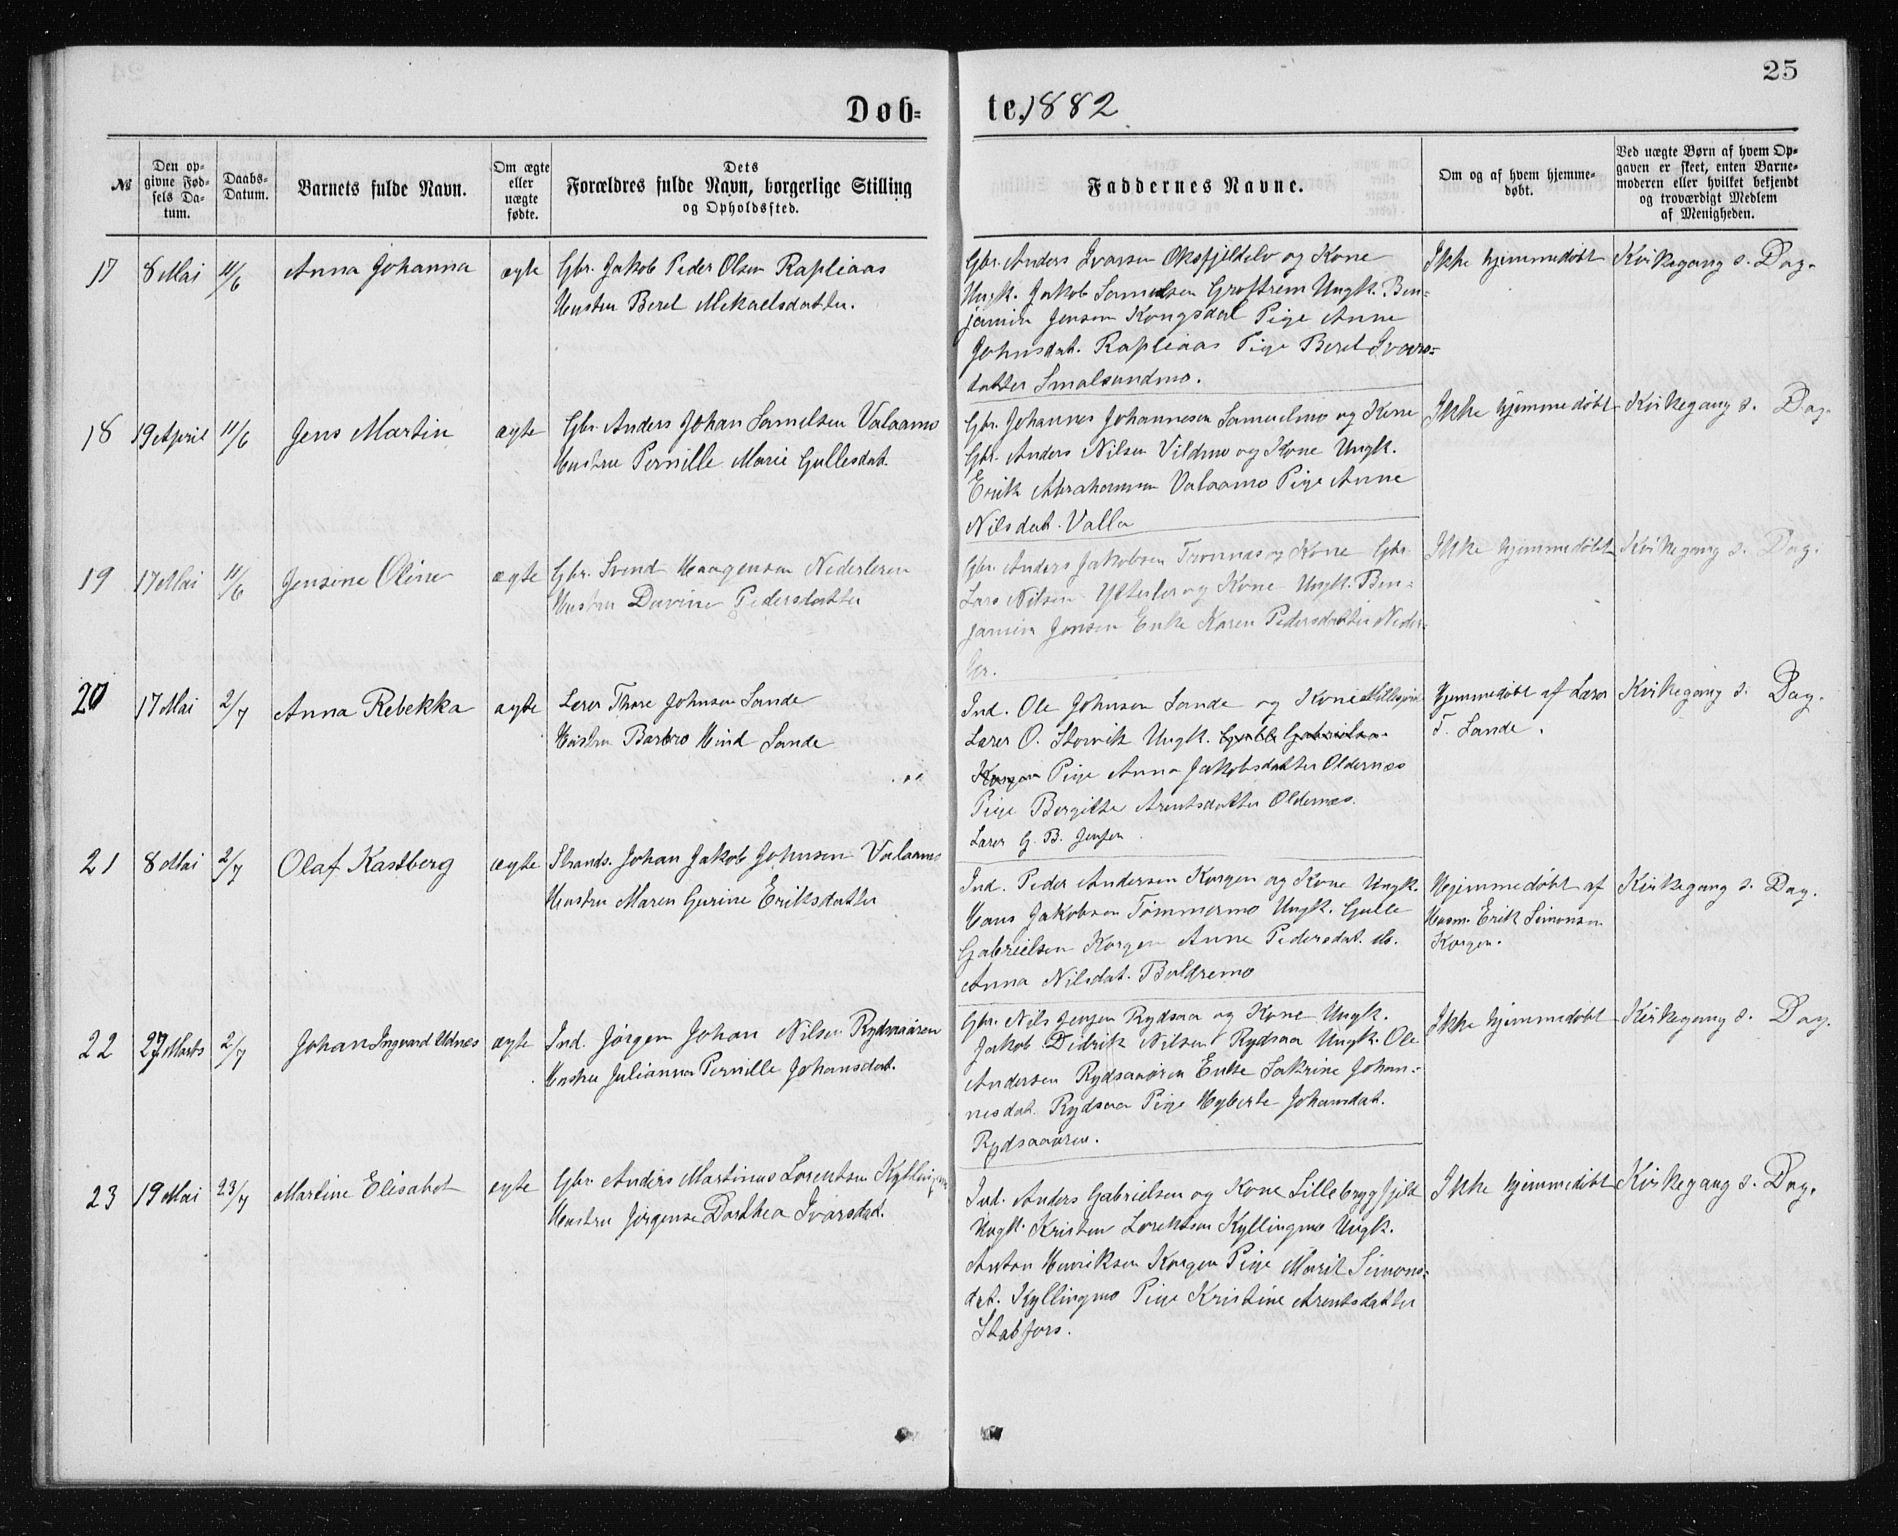 25
Døb= te. 1882
№
Den op-
givne Fød-
sels Da-
tum.
Daabs-
Datum.
Barnets fulde Navn.
Om ægte
eller
uægte
fødte.
Dets
Forældres fulde Navn, borgerlige Stilling
og Opholdssted.
Faddernes Navne.
Om og af hvem hjemme-
døbt.
Ved uægte Børn af hvem Op-
gaven er skeet, enten Barne-
moderen eller hvilket bekjendt
og troværdigt Medlem
af Menigheden.
17 8 Mai 11/6 Anna Johanna ægte
Gbr. Jakob Peder Olsen Rapliaas
Hustru Beret Mekaelsdatter.
Gbr. Anders Ivarsen Oksfjeldelv og Kone
Ungk. Jakob Samuelsen Groftrem Ungk. Ben=
jamin Jensen Kongsdal Pige Anne
Johnsdat. Rapliaas Pige Beret Ivars=
datter Smalsundmo.
Ikke hjemmedøbt Kirkegang s. Dag.
18 19 April 11/6 Jens Martin ægte
Gbr. Anders Johan Samelsen Valaamo
Hustru Pernille Marie Gullesdat.
Gbr. Johannes Johannesen Samuelmo og Kone
Gbr. Anders Nilsen Vildmo og Kone Ungk.
Erik Abrahamsen Valaamo Pige Anne
Nilsdat. Valla
Ikke hjemmedøbt Kirkegang s. Dag.
19 17 Mai 11/6 Jensine Oline ægte
Gbr. Svend Haagensen Nederleren
Hustru Davine Pedersdatter
Gbr. Anders Jakobsen Tronnæs og Kone Gbr.
Lars Nilsen Ytterler og Kone Ungk. Ben=
jamin Jensen Enke Karen Pedersdatter Neder-
ler.
Ikke hjemmedøbt Kirkegang s. Dag.
20 17 Mai 2/7 Anna Rebekka ægte
Lærer Thore Johnsen Sande
Hustru Barbro Hind Sande
Ind. Ole Johnsen Sande og Kone
Lærer O. Storvik Ungk. Gulle Gabrielsen
Korgen Pige Anna Jakobsdatter Oldernæs
Pige Bergitte Arentsdatter Oldernæs.
Lærer G. B. Jensen
Hjemmedøbt af Lærer
T. Sande.
Kirkegang s. Dag.
21 8 Mai 2/7 Olaf Kastberg ægte
Strands. Johan Jakob Johnsen Valaamo
Hustru Maren Gurine Eriksdatter
Ind. Peder Andersen Korgen og Kone Ungk.
Hans Jakobsen Tømmermo Ungk. Gulle
Gabrielsen Korgen Anne Pedersdat. ib.
Anna Nilsdat. Boldremo
Hjemmedøbt af
Husm. Erik Simonsen
Korgen.
Kirkegang s. Dag.
22 27 Marts 2/7 Johan Ingvard Udnæs ægte
Ind. Jørgen Johan Nilsen Rydsaaøren
Hustru Julianna Pernille Johansdat.
Gbr. Nils Jensen Rydsaa og Kone Ungk.
Jakob Didrik Nilsen Rydsaa Ungk. Ole
Andersen Rydsaaøren Enke Sakrine Johan=
nesdat. Rydsaa Pige Hyberte Johansdat.
Rydsaaøren.
Ikke hjemmedøbt Kirkegang s. Dag.
23 19 Mai 23/7 Martine Elisabet ægte
Gbr. Anders Martinus Lorentsen Kyllingmo
Hustru Jørgense Dorthea Ivarsdat.
Ind. Anders Gabrielsen og Kone Lillebrygfjeld
Ungk. Kristen Lorentsen Kyllingmo Ungk.
Anton Henriksen Korgen Pige Marit Simons=
dat. Kyllingmo Pige Kristine Arentsdatter
Stabfors.
Ikke hjemmedøbt Kirkegang s. Dag.